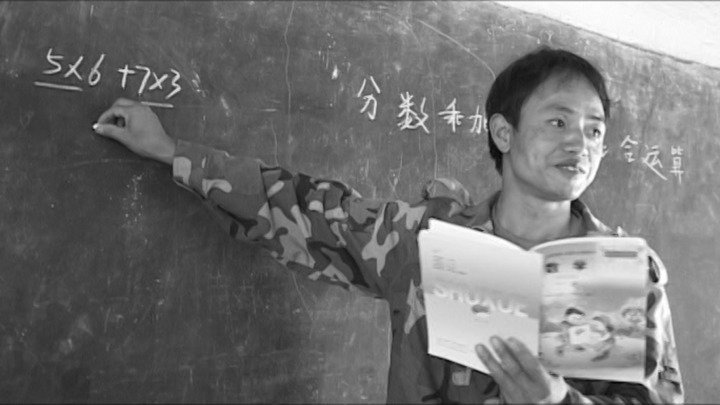 5×6+7×3
分数乘加 合运算
SHUXUE